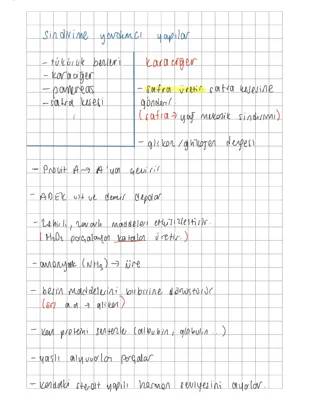 sindirime yardımcı yapılar
- tükürük bezleri
- karaciğer
- pankreas
- safra kesesi
karaciğer
- safra üretir safra kesesine
gönderir
(safra → yağ mekanik sindirimi)
- glikoz/glikojen dengesi
- Provit A → A'ya çevirir
- ADEK vit ve demir depolar
- zehirli, zararlı maddeleri etkisizleştirir
(H₂O₂ parçalayan katalaz üretir.)
- amonyak (NH₃) → üre
- besin maddelerini birbirine dönüştürür
(ör: a.a. → glikoz)
- kan proteini sentezler (albumin, globulin...)
- yaşlı alyuvarları parçalar
- kandaki steroit yapılı hormon seviyesini ayarlar.